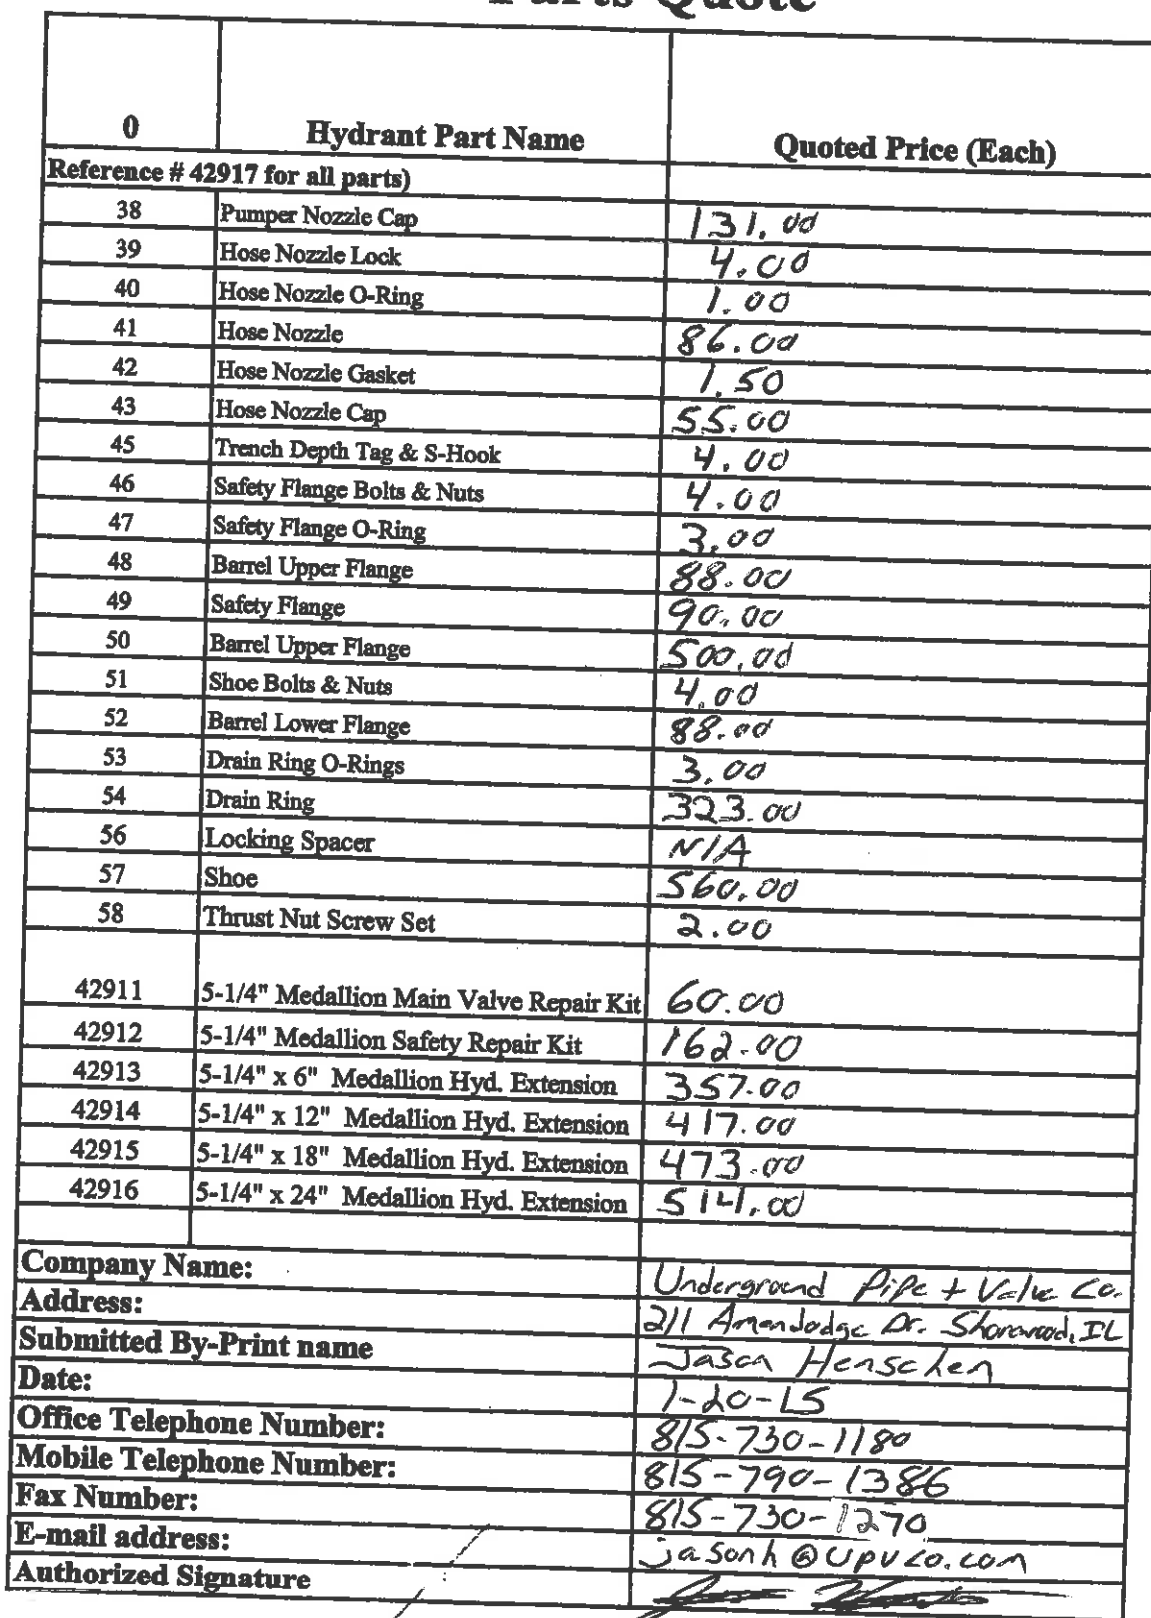 Parts Quote
0 Hydrant Part Name Quoted Price (Each)
Reference # 42917 for all parts)
38 Pumper Nozzle Cap 131.00
39 Hose Nozzle Lock 4.00
40 Hose Nozzle O-Ring 1.00
41 Hose Nozzle 86.00
42 Hose Nozzle Gasket 1.50
43 Hose Nozzle Cap 55.00
45 Trench Depth Tag & S-Hook 4.00
46 Safety Flange Bolts & Nuts 4.00
47 Safety Flange O-Ring 3.00
48 Barrel Upper Flange 88.00
49 Safety Flange 90.00
50 Barrel Upper Flange 500.00
51 Shoe Bolts & Nuts 4.00
52 Barrel Lower Flange 88.00
53 Drain Ring O-Rings 3.00
54 Drain Ring 323.00
56 Locking Spacer N/A
57 Shoe 560.00
58 Thrust Nut Screw Set 2.00
42911 5-1/4" Medallion Main Valve Repair Kit 60.00
42912 5-1/4" Medallion Safety Repair Kit 162.00
42913 5-1/4" x 6" Medallion Hyd. Extension 357.00
42914 5-1/4" x 12" Medallion Hyd. Extension 417.00
42915 5-1/4" x 18" Medallion Hyd. Extension 473.00
42916 5-1/4" x 24" Medallion Hyd. Extension 514.00
Company Name: Underground Pipe + Valve Co.
Address: 211 Amendodge Dr. Shorewood, IL
Submitted By-Print name Jason Henschen
Date: 1-20-15
Office Telephone Number: 815-730-1180
Mobile Telephone Number: 815-790-1386
Fax Number: 815-730-1270
E-mail address: jasonh@upvco.com
Authorized Signature